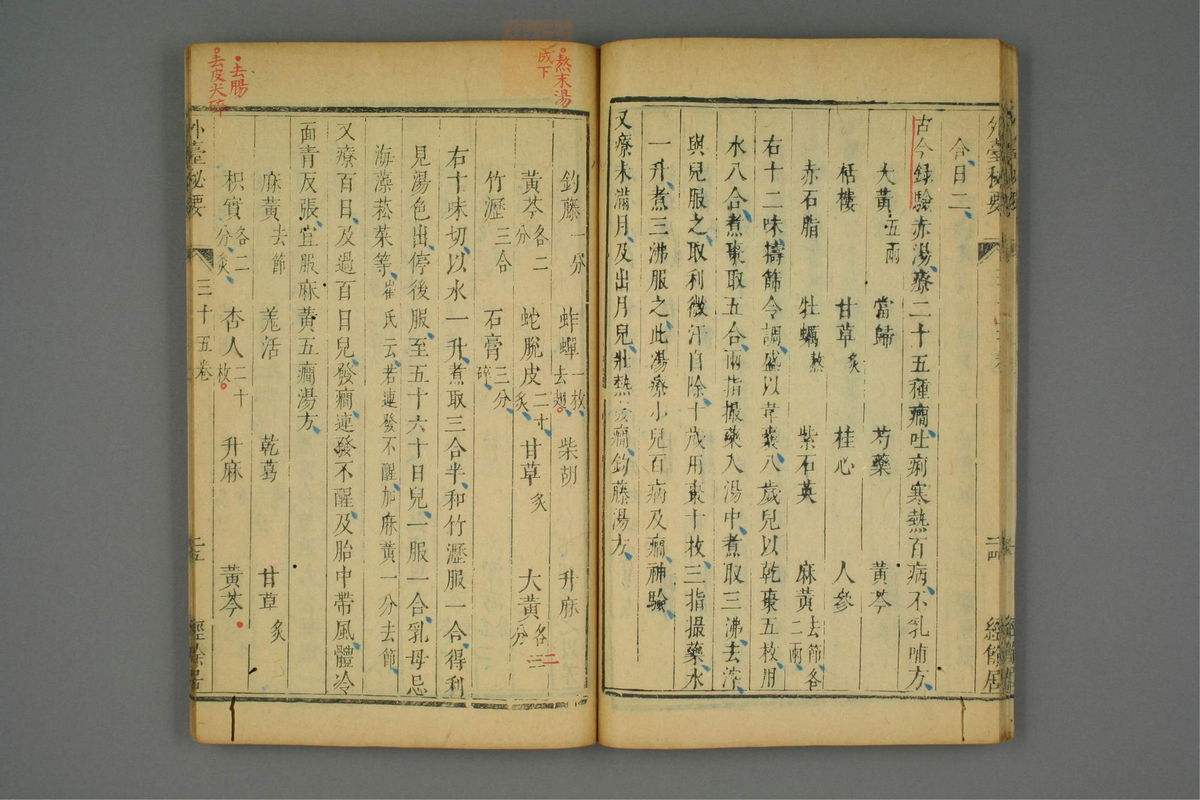 合日二
古今録驗赤湯療二十五種癇吐痢寒熱百病不乳哺方
大黃五兩 當歸 芍藥 黃芩
栝樓 甘草炙 桂心 人參
赤石脂 牡蠣熬 紫石英 麻黃去節各二兩
右十二味擣篩令調盛以韋囊八歲兒以乾棗五枚用
水八合煮棗取五合兩指撮藥入湯中煮取三沸去滓
與兒服之取利微汗自除十歲用棗十枚三指撮藥水
一升煮三沸服之此湯療小兒百病及癇神驗
又療未滿月及出月兒壯熱發癇鈎藤湯方
熬末湯成下
鈎藤一分 蚱蟬一枚去翅 柴胡 升麻
黃芩各二分 蛇脫皮二寸炙 甘草炙 大黃各三分
二
竹瀝三合 石膏三分碎
右十味切以水一升煮取三合半和竹瀝服一合得利
見湯色出停後服至五十六十日兒一服一合乳母忌
海藻菘菜等崔氏云若連發不醒加麻黃一分去節
又療百日及過百日兒發癇連發不醒及胎中帶風體冷
面青反張宜服麻黃五癇湯方
去腸
麻黃去節 羗活 乾葛 甘草炙
去皮尖碎
枳實各二分炙 杏人二十枚 升麻 黃芩
外臺秘要 三十五卷 二五 經餘居